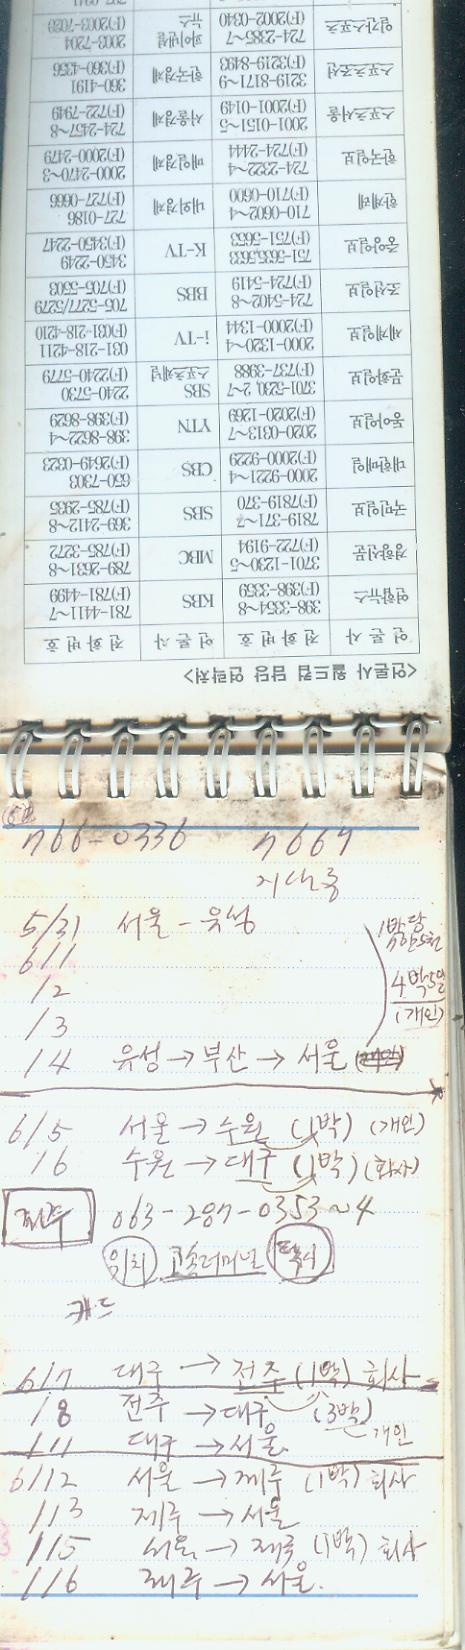 <언론사 월드컵 담당 연락처>
언 론 사 전 화 번 호 언 론 사 전 화 번 호
연합뉴스 398-3354~8 (F)398-3359 KBS 781-4411~7 (F)781-4499
경향신문 3701-1230~5 (F)722-9194 MBC 789-2631~8 (F)785-3272
국민일보 7819-371~7 (F)7819-370 SBS 369-2412~8 (F)785-2935
대한매일 2000-9221~4 (F)2000-9229 CBS 650-7303 (F)2649-0323
동아일보 2020-0313~7 (F)2020-1269 YTN 398-8622~4 (F)398-8629
문화일보 3701-5230, 2~7 (F)737-3988 SBS 스포츠채널 2240-5730 (F)2240-5779
세계일보 2000-1320~4 (F)2000-1344 i-TV 031-218-4211 (F)031-218-4210
조선일보 724-5402~8 (F)724-5419 BBS 705-5277/5279 (F)705-5503
중앙일보 751-5636,5633 (F)751-5653 K-TV 3450-2249 (F)3450-2247
한겨레 710-0602~4 (F)710-0600 내외경제 727-0186 (F)727-0666
한국일보 724-2322~4 (F)724-2444 매일경제 2000-2470~3 (F)2000-2479
스포츠서울 2001-0151~5 (F)2001-0149 서울경제 724-2457~8 (F)722-7949
스포츠조선 3219-8171~9 (F)3219-8493 한국경제 360-4191 (F)360-4356
일간스포츠 724-2385~7 (F)2002-0340 파이낸셜뉴스 2003-7204
766-0336 7667
5/31 서울 - 유성
6/1
/2 4박5일
/3 (개인)
/4 유성 → 부산 → 서울
6/5 서울 → 수원 (1박) (개인)
/6 수원 → 대구 (1박) (회사)
전주 063-287-0353~4
위치 고속터미널 택시
카드
6/7 대구 → 전주 (1박) 회사
/8 전주 → 대구 (3박)
/11 대구 → 서울 개인
6/12 서울 → 제주 (1박) 회사
/13 제주 → 서울
/15 서울 → 제주 (1박) 회사
/16 제주 → 서울.